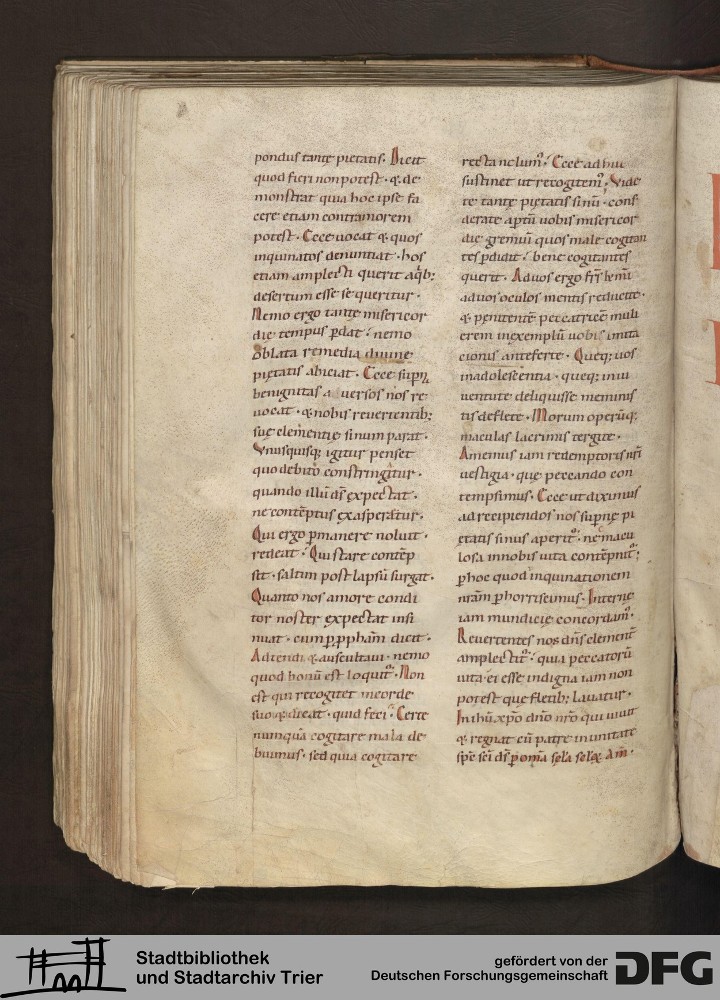 pondus tantę pietatis. Dicit
quod fieri non potest. & de
monstrat quia hoc ipse fa
cere etiam contra morem
potest. Ecce uocat & quos
inquinatos denuntiat. hos
etiam amplecti querit a qͥb;
desertum esse se queritur.
Nemo ergo tantę misericor
dię tempus ꝑdat. nemo
oblata remedia diuinę
pietatis abiciat. Ecce supnę
benignitas auersos nos re
uocat. & nobis reuertentib;
suę clementię sinum parat.
Vnusquisq; igitur penset
quo debito constringitur.
quando illū d̄s expectat.
ne contēptus exasperatur.
Qui ergo ꝑmanere noluit.
redeat. Qui stare contēp
sit. saltim post lapsū surgat.
Quanto nos amore condi
tor noster expectat insi
nuat. cum ꝑ ꝓpham dicit.
Adtendi & auscultaui. nemo
quod bonū est loquit̃. Non
est qui recogitet in corde
suo & dicat. quid feci. Certe
numquā cogitare mala de
buimus. sed quia cogitare
recta nolum᷒. Ecce adhuc
sustinet ut recogitem᷒. Vide
te tantę pietatis sinū. cons
derate aptū uobis misericor
dię gremiū quos male cogitan
tes pdidit. bene cogitantes
querit. Ad uos ergo fr̄s k̄mi
ad uos oculos mentis reducite.
& penitentē peccatricē muli
erem in exemplū uobis imita
tionis anteferte. Queq; uos
in adolescentia. queq; in iu
uentute deliquisse meminis
tis deflete. Morum operūq;
maculas lacrimis tergite.
Amemus iam redemptoris nr̄i
uestigia. que peccando con
tempsimus. Ecce ut diximus
ad recipiendos nos supnę pi
etatis sinus aperit̃. nc̄ macu
losa in nobis uita contēpnit̃;
ꝑ hoc quod inquinationem
nr̄am ꝑhorrescimus. Internę
iam mundicię concordam᷒.
Reuertentes nos dn̄s clement̃
amplectit̃. quia peccatorū
uita ei esse indigna iam non
potest que fletib; lauatur.
In ih̄u xp̄o dn̄o nr̄o qui uiuit
& regnat cū patre in unitate
sp̄c sc̄i d̄s ꝑ om̄ia sc̄la sc̄lo℟. Am̄.
Stadtbibliothek
und Stadtarchiv Trier
gefördert von der
Deutschen Forschungsgemeinschaft
DFG